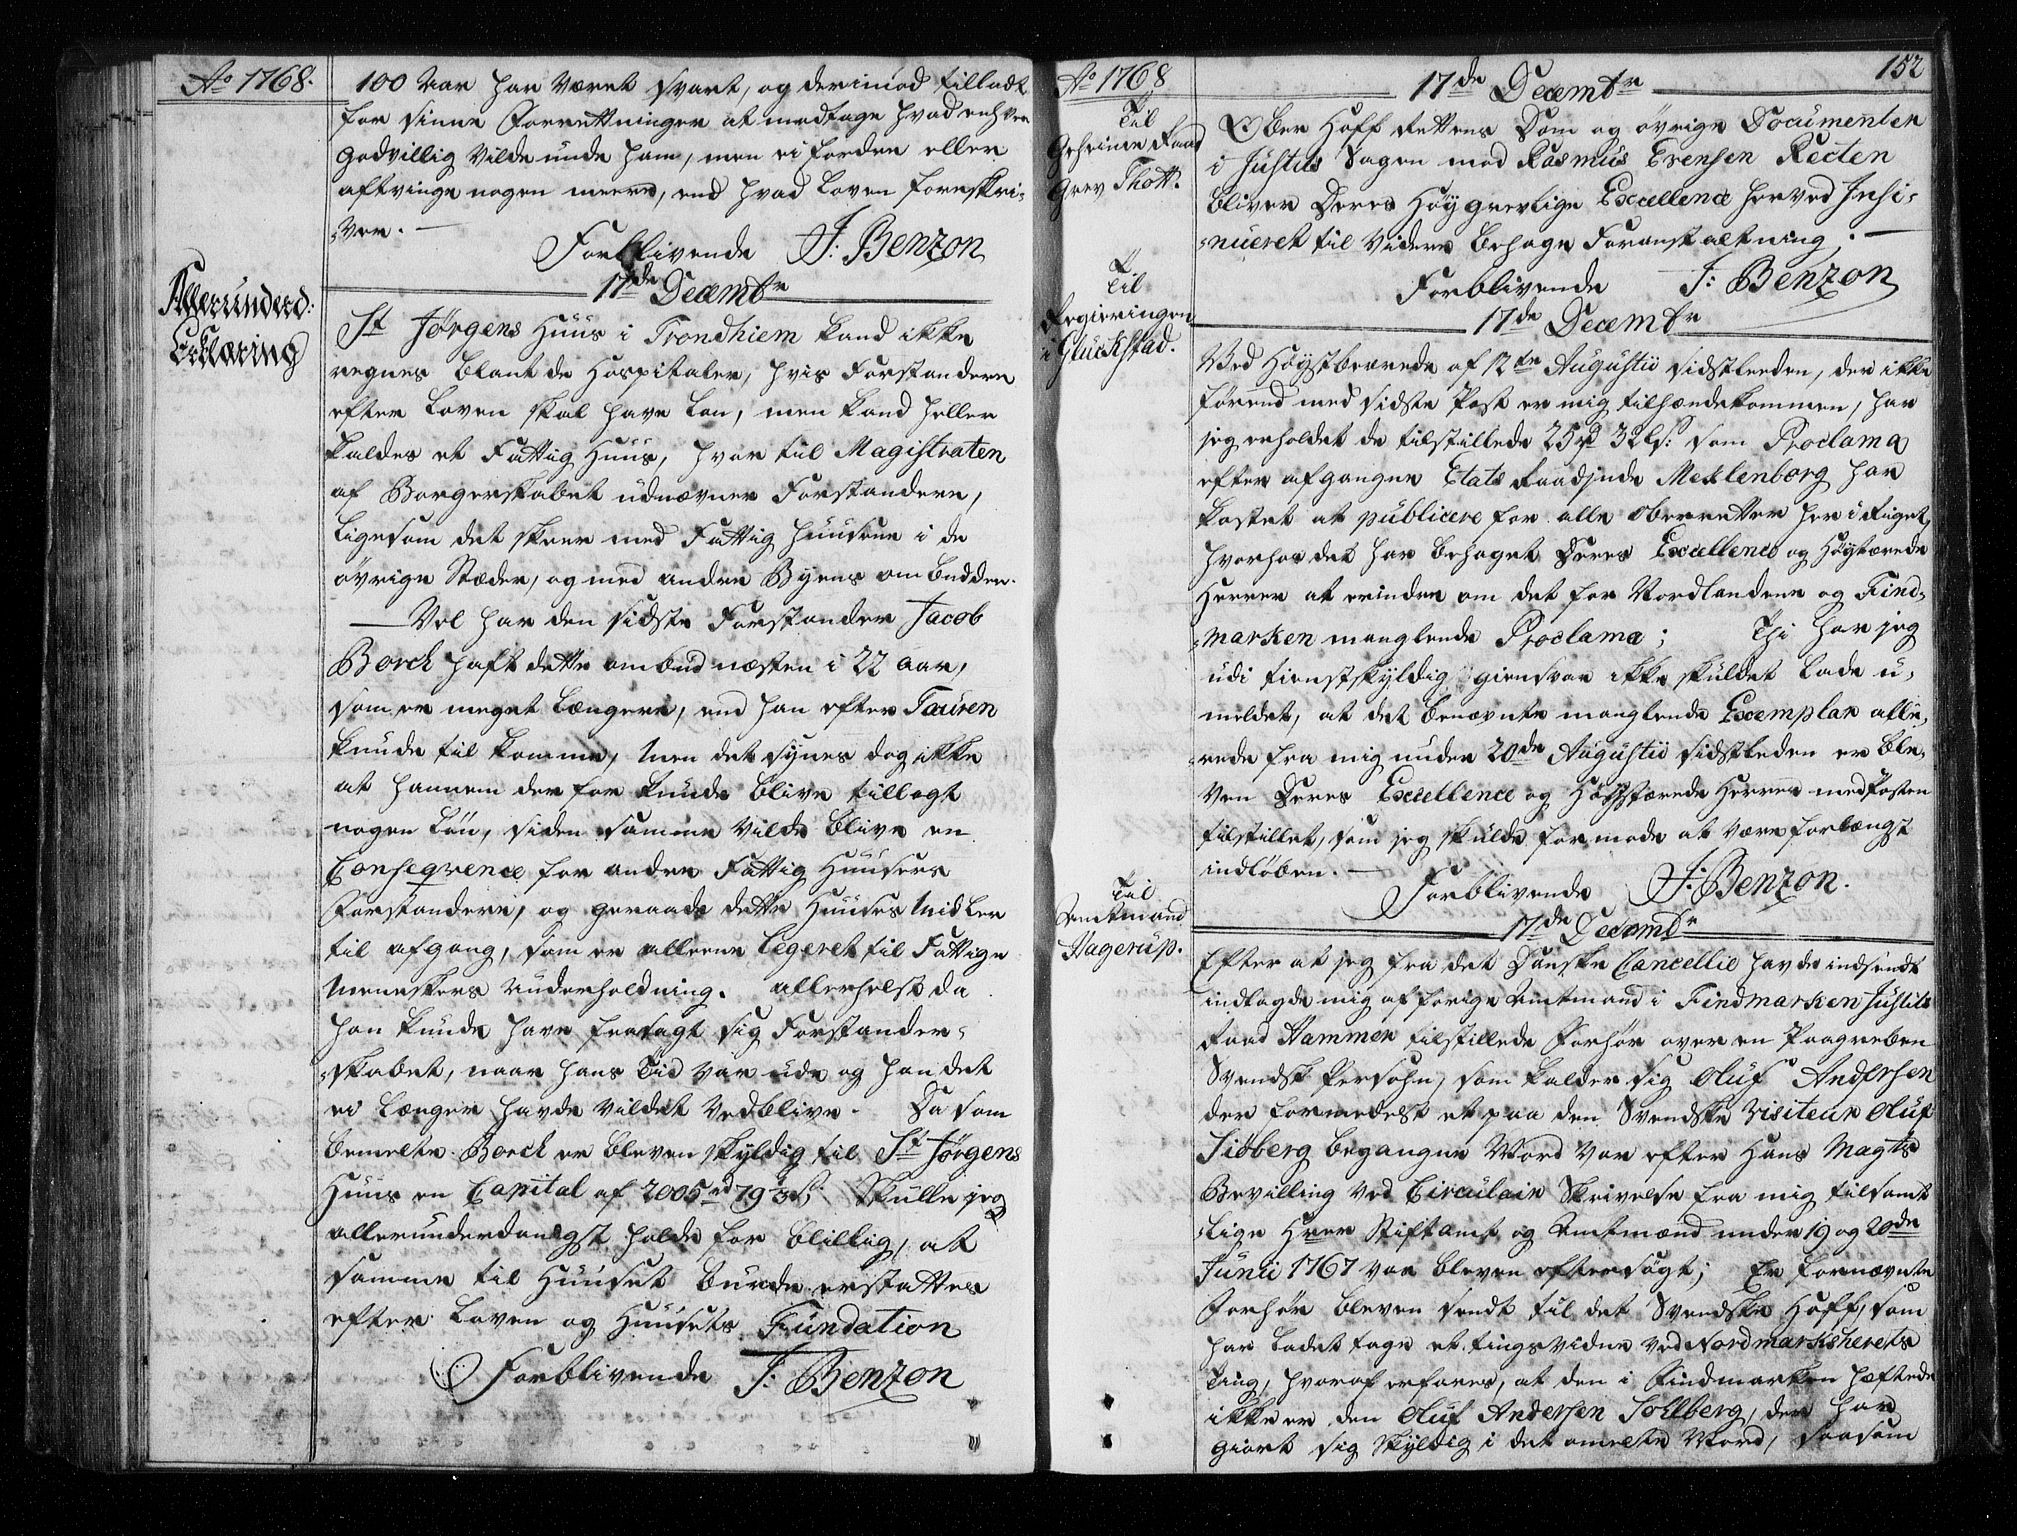 Ao 1768.
100 Aar har været svart, og derimod tilladt
for sinne Forrettninger at modtage hvad enhver
godvillig vilde unde ham, men ei fordre eller
aftvinge nogen meere, end hvad Loven foreskri-
ver.
Forblivende J: Benzon
17de Decembr
Allerunderd:
Erklæring
St Jørgens Huus i Trondhiem kand ikke
regnes blant de Hospitaler, hvis Forstandere
efter Loven skal have Løn, men kand heller
kaldes et Fattig Huus, hvor til Magistraten
af Borgerskabet udnævner Forstandere,
ligesom det skeer med Fattig Huusene i de
øvrige Stæder, og med andre Byens ombudder.
Vel har den sidste Forstander Jacob
Borch haft dette ombud næsten i 22 aar,
som er meget længere, end han efter Touren
kunde til komme, Men det synes dog ikke
at hannem der for kunde blive tillagt
nogen Løn, siden samme vilde blive en
Conseqvence for andre Fattig Huusers
Forstandere, og geraade dette Huuses Midler
til afgang, som er alleene legeret til Fattige
Menneskers underholdning. allerhelst da
han kunde have frasagt sig Forstander-
skabet, naar hans Tid var ude og han det
ei længer havde vildet vedblive. Da som
bemelte Borch er bleven skyldig til St Jørgens
Huus en Capital af 2005 rd 79 1/3 s, Skulle jeg
allerunderdanigst holde for billig, at
samme til Huuset burde erstattes
efter Loven og Huusets Fundation
Forblivende J: Benzon
Ao 1768
17de Decembr
152
Til
Geheime Raad
Grev Thott.
Ober Hoff Rettens Dom og øvrige Documenter
i Justits Sagen mod Rasmus Evensen Recten
bliver Deres Høygrevlige Excellence herved Insi-
nueret til videre behage Foranstaltning.
Forblivende J: Benzon
17de Decembr
Til
Regieringen
i Glückstad.
Med Høystbeærede af 12te Augustii sidstleeden, der ikke
førend med sidste Post er mig tilhændekommen, har
jeg erholdet de tilstillede 25 rd 32 ls: som Proclama
efter afgangne Etats Raadinde Meklenborg har
kostet at publicere for alle Oberretter her i Riget,
hvorhos det har behaget Deres Excellence og Høytærede
Herrer at erindre om det for Nordlandene og Find-
marken manglende Proclama; Thi har jeg
udi tienstskyldig giensvar ikke skuldet lade u-
meldet, at det benævnte manglende Exemplar alle-
rede fra mig under 20de Augustii sidstleden er ble-
ven Deres Excellence og Høystærede Herrer med Posten
tilstillet, som jeg skulde formode at være forlængst
indløben.
Forblivende J: Benzon.
17de Decembr
Til
Amtmand
Hagerup.
Efter at jeg fra det Danske Cancellie havde indsendt
indtagde mig af forige Amtmand i Findmarken Justits
Raad Hammer tilstillede Forhør over en Paagreben
Svendsk Persohn, som kalder sig Oluf Andersen
der formedelst et paa den Svendske Visiteur Oluf
Sidberg begangne Mord var efter Hans Mayts
Bevilling ved Circulair Skrivelse fra mig tilsamt-
lige Hrer Stiftamt og Amtmænd under 19 og 20de
Junii 1767 var bleven eftersøgt; Er fornævnte
Forhør bleven sendt til det Svendske Hoff, som
har ladet tage et Tingsvidne ved Nordmarksherets
Ting, hvoraf erfares, at den i Findmarken hæftede
ikke er den Oluf Andersen Sollberg, der har
giort sig skyldig i det omelte Mord, saasom